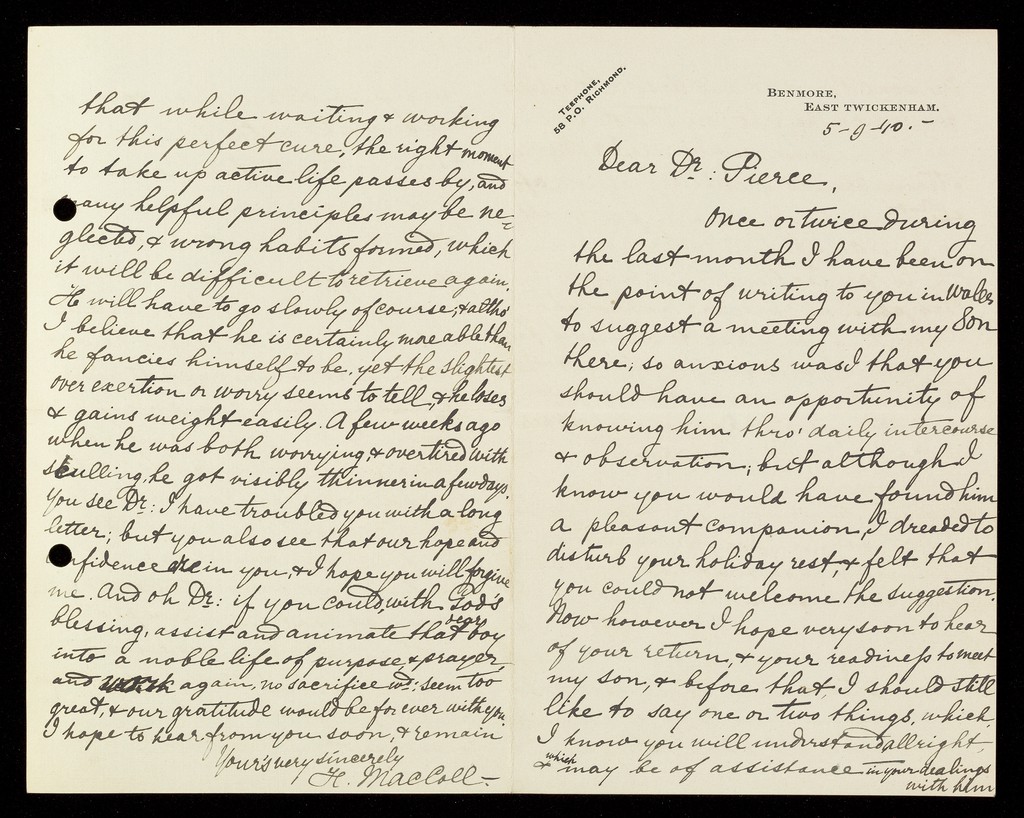 TELEPHONE,
58 P.O. RICHMOND.
BENMORE,
EAST TWICKENHAM.
5-9-10.-
Dear Dr: Pierce,
Once or twice during
the last month I have been on
the point of writing to you in Wales
to suggest a meeting with my Son
there; so anxious was I that you
should have an opportunity of
knowing him thro' daily intercourse
& observation; but although I
know you would have found him
a pleasant companion, I dreaded to
disturb your holiday rest, & felt that
you could not welcome the suggestion.
Now however I hope very soon to hear
of your return, & your readiness to meet
my son, & before that I should still
like to say one or two things, which,
I know you will understand allright,
& which may be of assistance in your dealings
with him
that while waiting & working
for this perfect cure, the right moment
to take up active life passes by, and
many helpful principles may be ne-
glected, & wrong habits formed, which
it will be difficult to retrieve again.
He will have to go slowly of course, & altho'
I believe that he is certainly more able than
he fancies himself to be, yet the slightest
over exertion or worry seems to tell, & he loses
& gains weight easily. A few weeks ago
when he was both worrying, & overtired with
sculling, he got visibly thinner in a few days.
You see Dr: I have troubled you with a long
letter; but you also see that our hope and
confidence are in you, & I hope you will forgive
me. And oh Dr: if you could, with God's
blessing, assist and animate that dear boy
into a noble life of purpose, & prayer,
and again, no sacrifice wd: seem too
great, & our gratitude would be for ever with you.
I hope to hear from you soon, & remain
Your's very sincerely
H. MacColl-